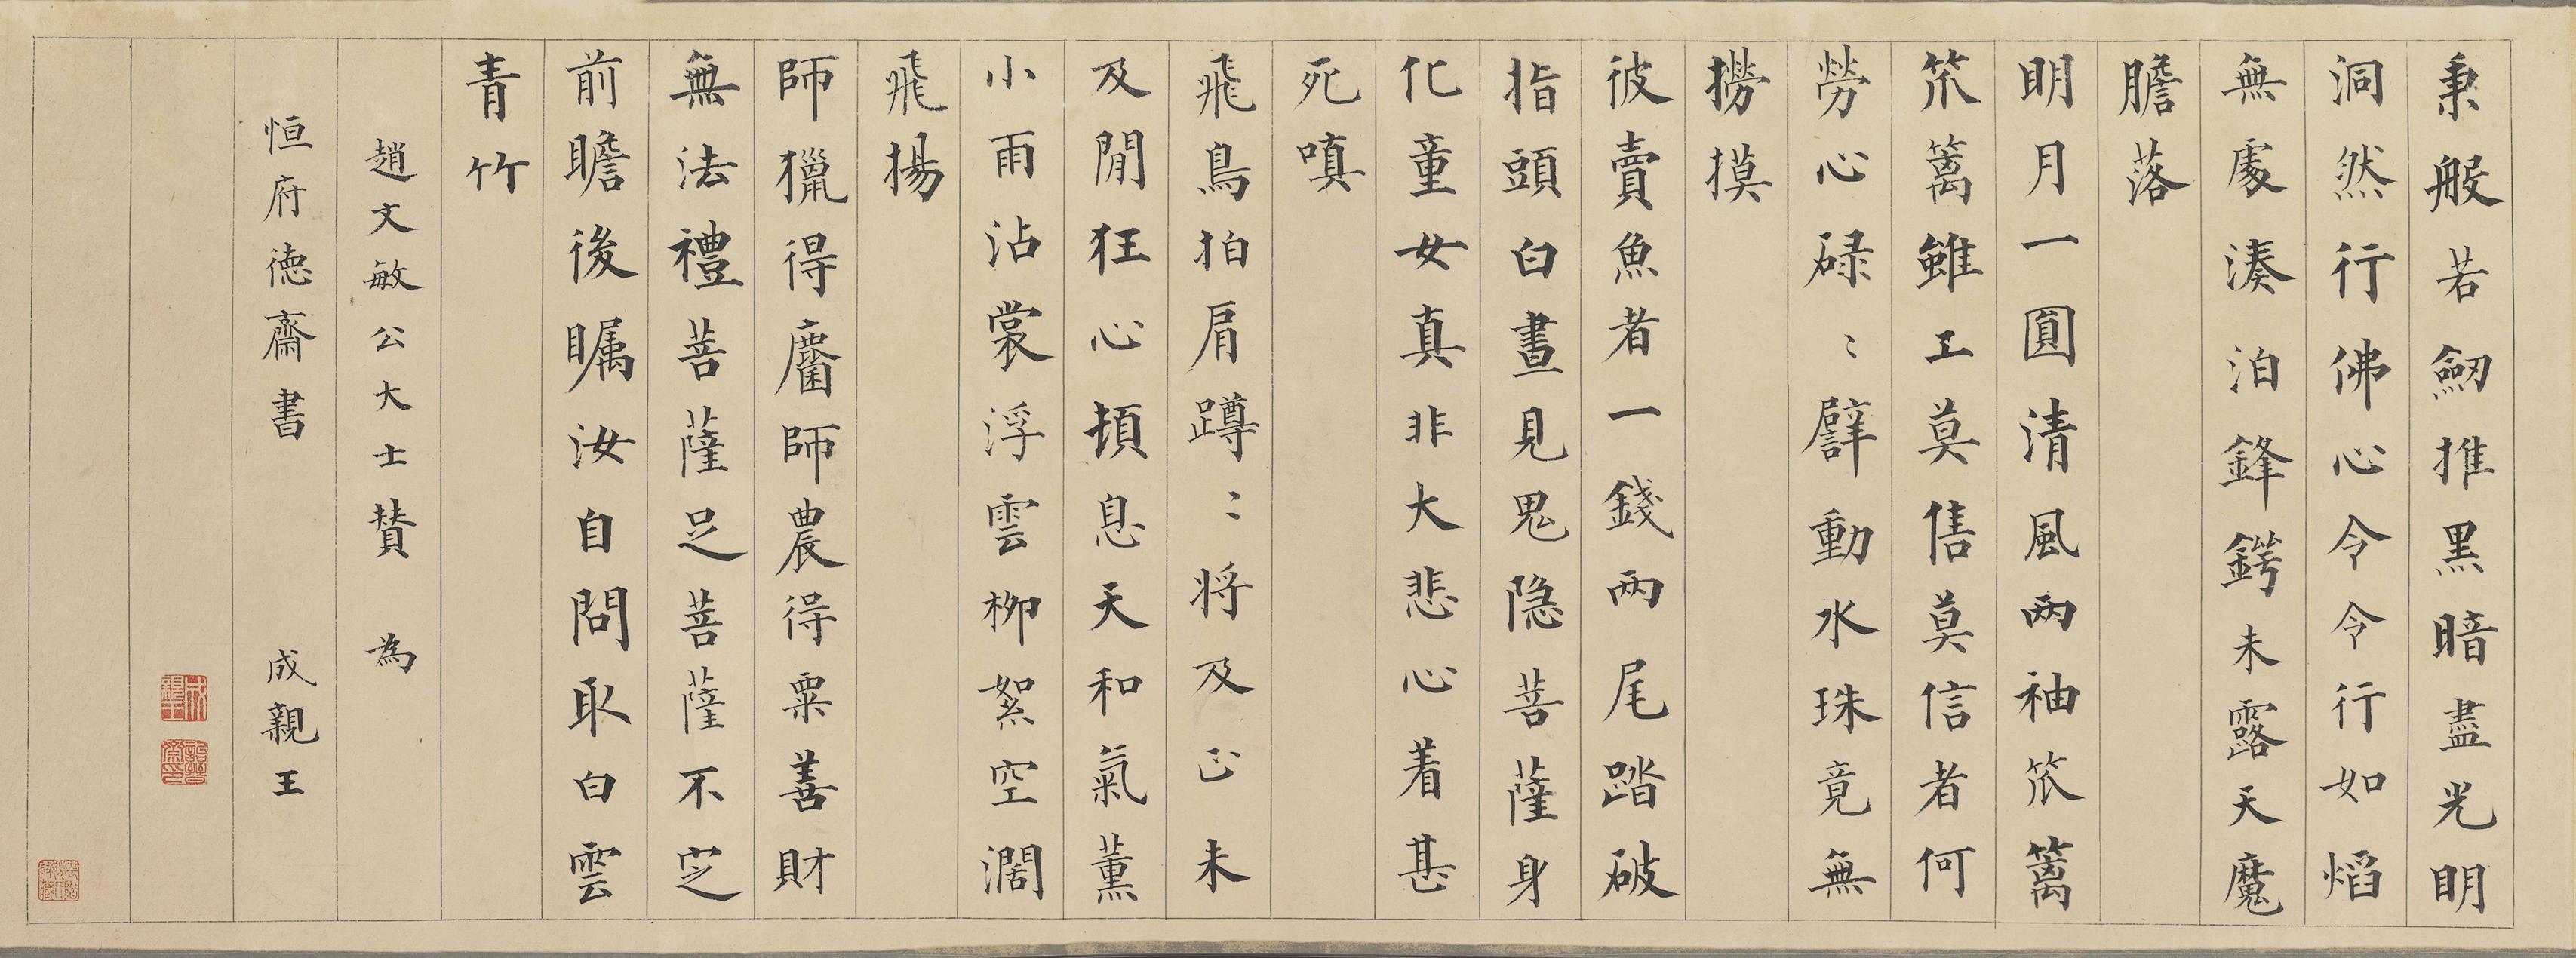 秉般若劒推黑暗盡光明
洞然行佛心令令行如熖
無處湊泊鋒鍔未露天魔
膽落
明月一圓清風兩袖笊篱
笊篱雖工莫售莫信者何
勞心碌〻劈動水珠竟無
撈摸
彼賣魚者一錢两尾踏破
指頭白晝見鬼隐菩薩身
化童女真非大悲心着甚
死嗔
飛鳥拍肩蹲〻将及正未
及閒狂心頓息天和氣薰
小雨沾裳浮雲柳絮空濶
飛揚
師獵得麕師農得粟善財
無法禮菩薩足菩薩不定
前瞻後矚汝自問取白雲
青竹
趙文敏公大士賛 為
恒府德齋書 成親王